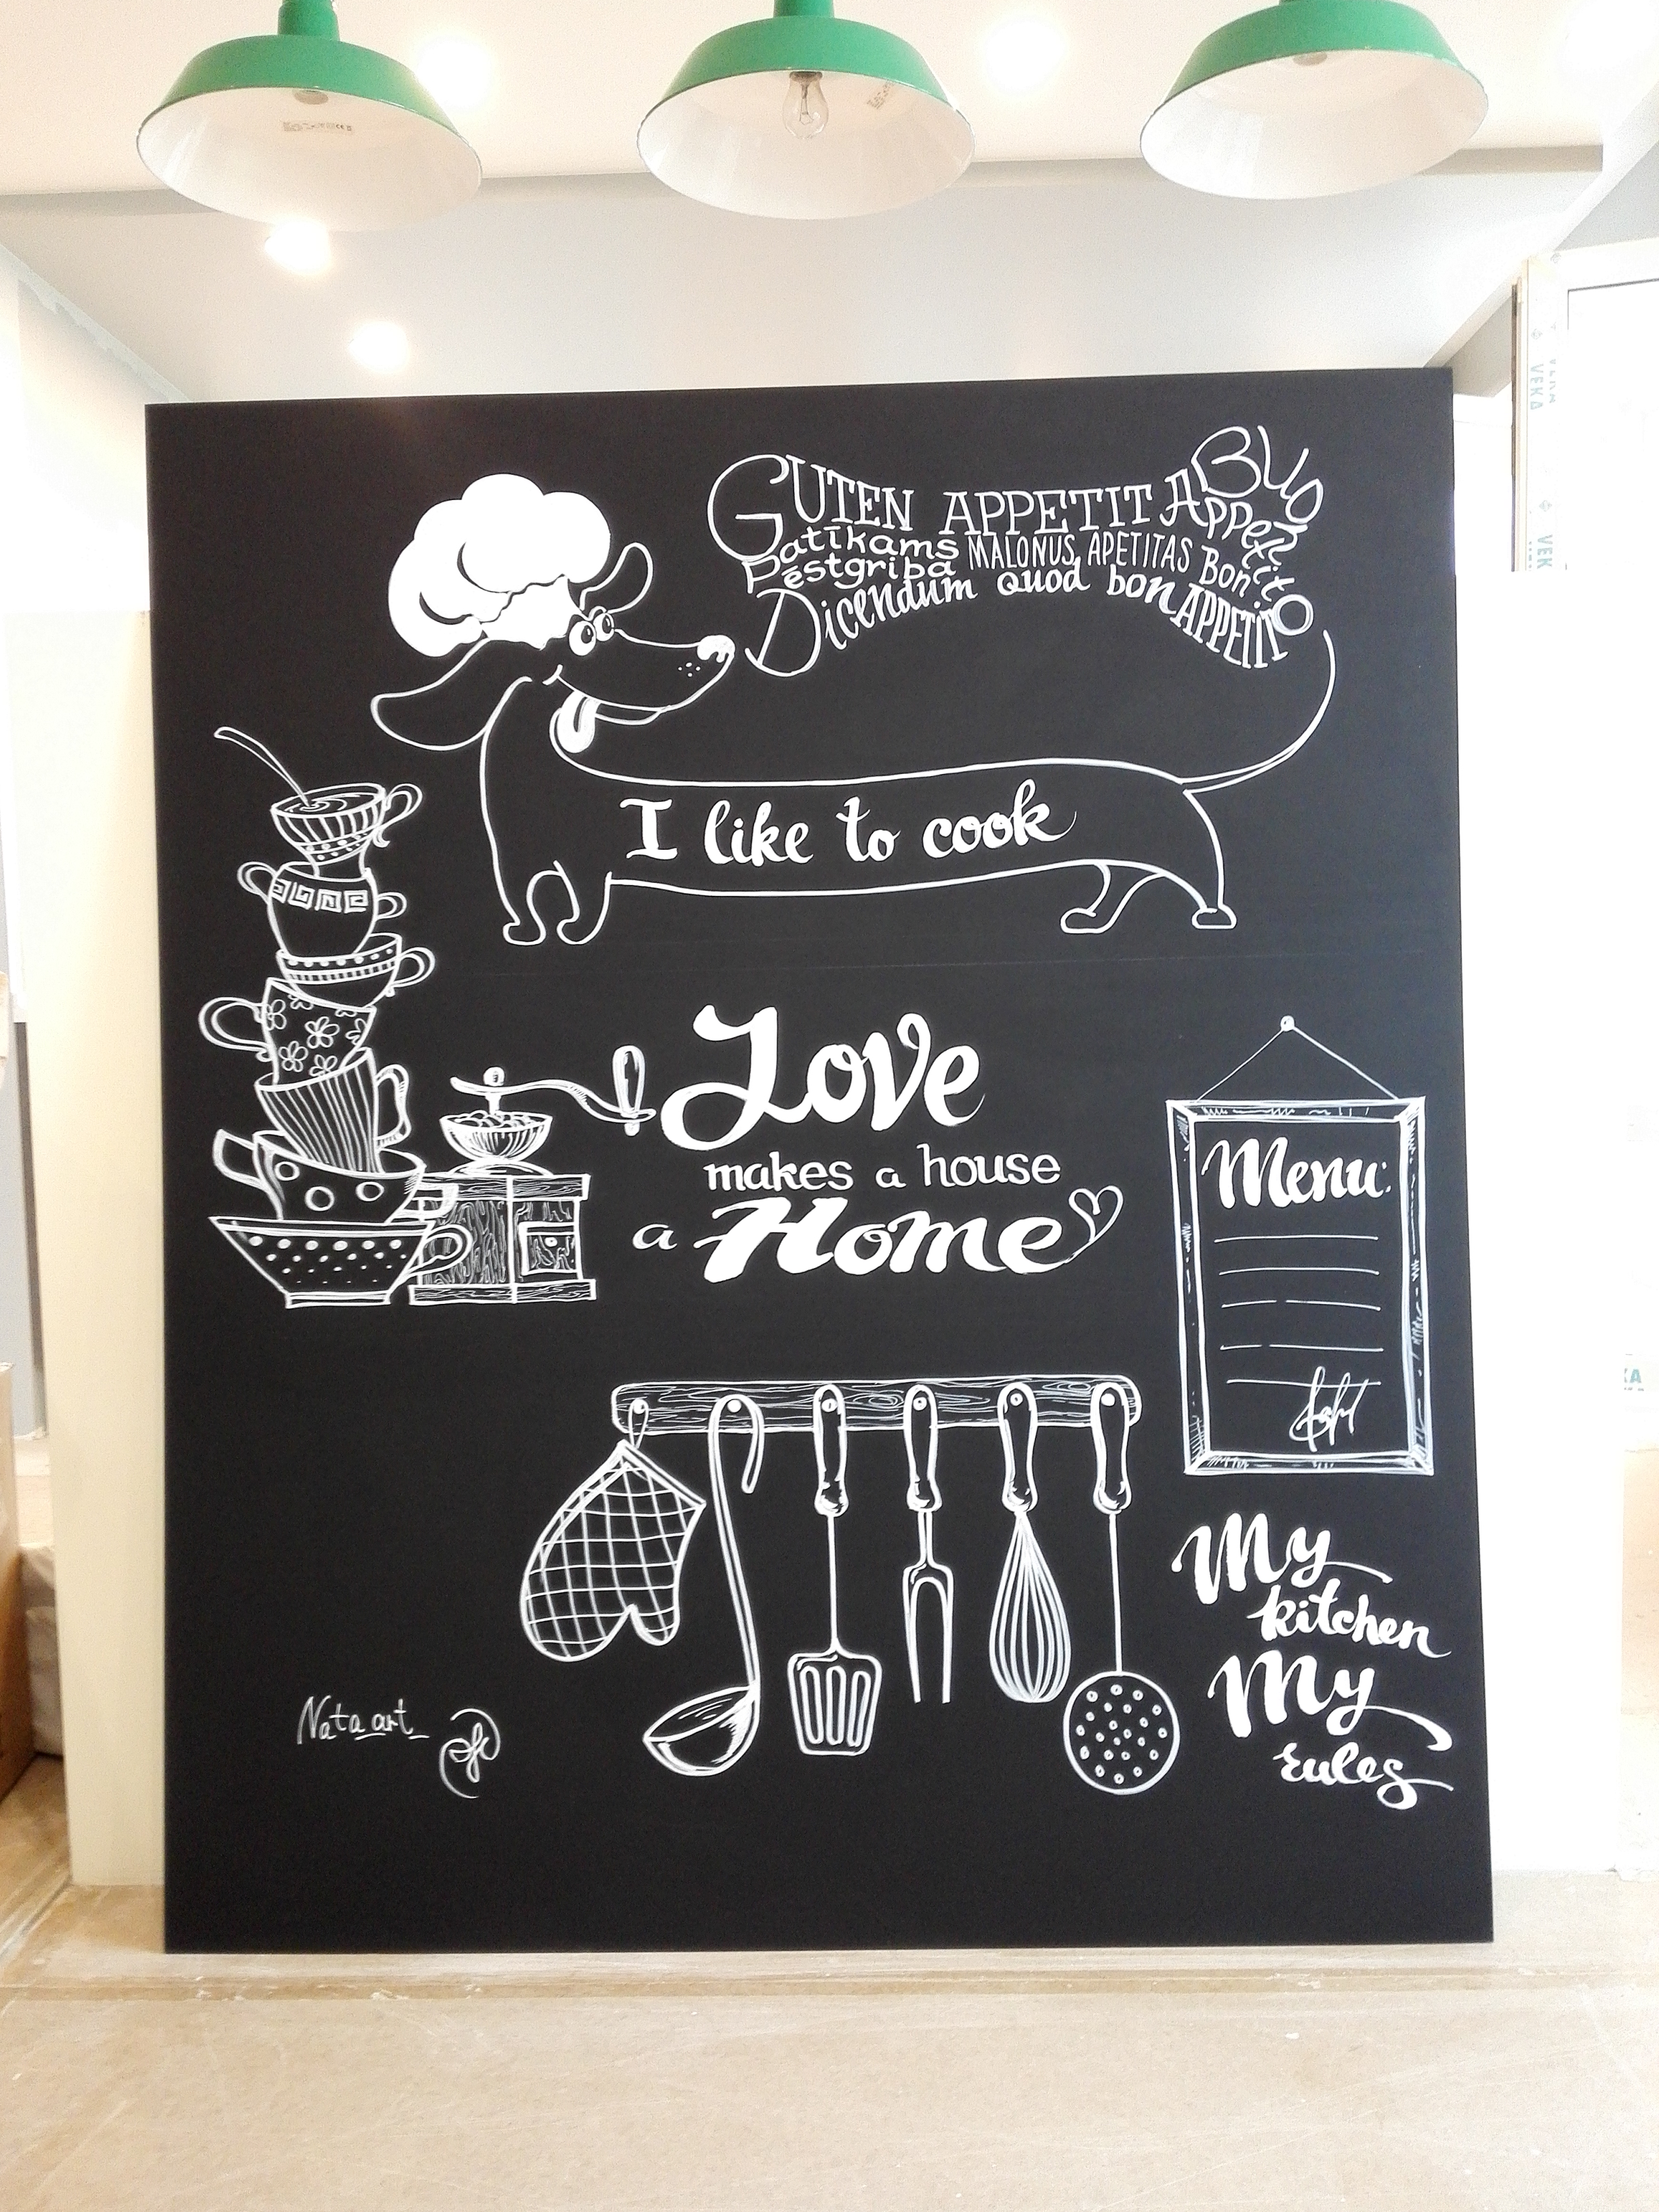 GUTEN APPETIT BUON
Appetito
Patīkams MALONUS APETITAS
Pēstgriba Bon
Dicendum quod bon APPETITO
I like to cook
Love
makes a house
a Home
Menu:
My
kitchen
My
rules
Nata art
VEKA
VEK
KA